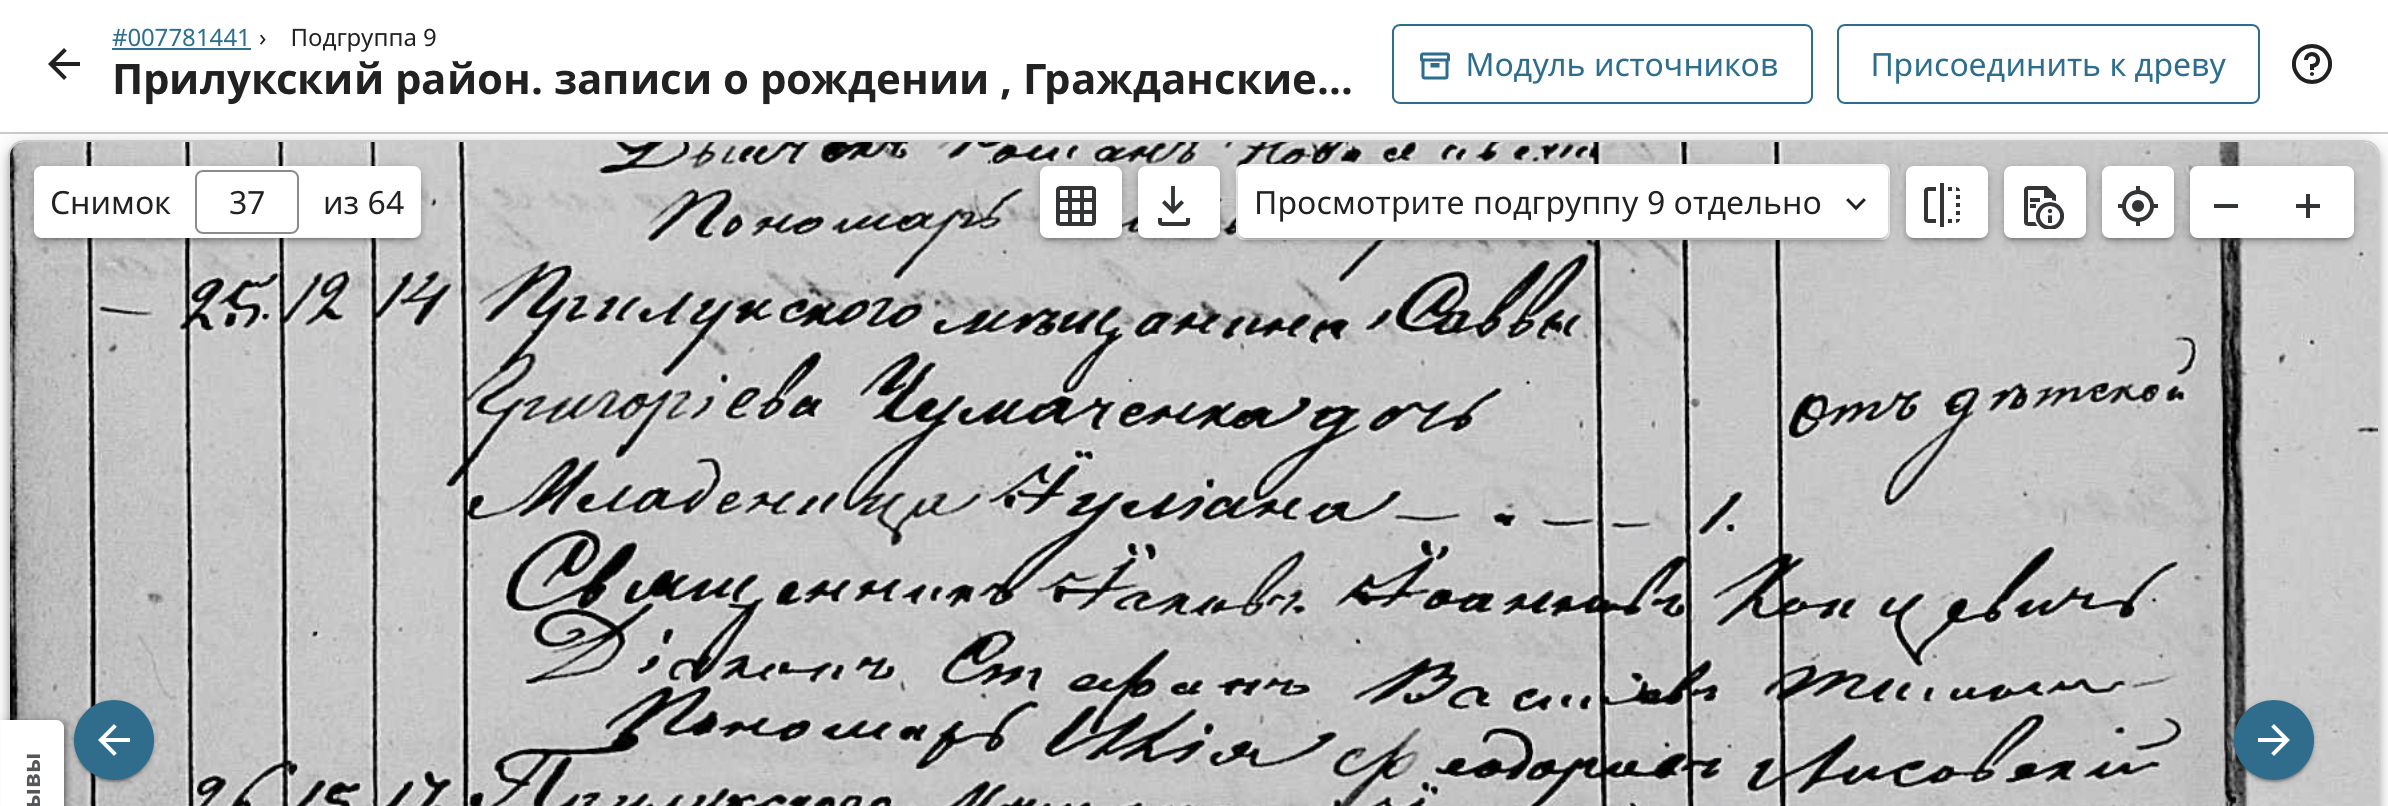 #007781441 › Подгруппа 9
Прилукский район. записи о рождении , Гражданские...
Модуль источников
Присоединить к древу
Снимок 37 из 64
Просмотрите подгруппу 9 отдельно
Пономарь
— 25. 12 14 Прилукского мѣщанина Саввы
Григоріева Чумаченка дочь
отъ дѣтской
Младеница Іуліана — — — 1.
Священникъ Іаковъ Іоанновъ Концевичъ
Діаконъ Стефанъ Василіевъ
Пономарь Илія Феодоровъ Лисовскій
26 15 17 Прилукского
ывы